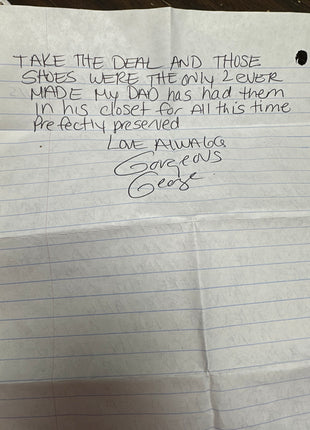 TAKE THE DEAL AND THOSE
SHOES WERE THE ONLY 2 EVER
MADE MY DAD has had them
In his closet for All this time
Prefectly preserved
LOVE ALWAGG
Gorgeous
George